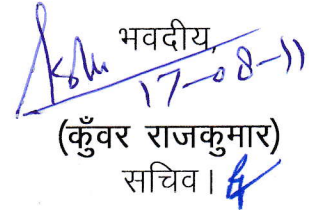 भवदीय,
17-08-11
(कुँवर राजकुमार)
सचिव।